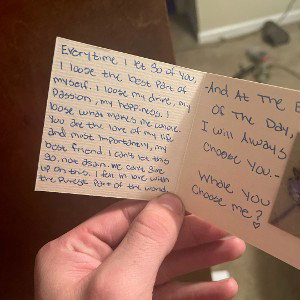 Everytime I let go of you,
I loose the best part of
myself. I loose my drive, my
passion, my happiness. I
loose what makes me whole.
You are the love of my life
and most importantly, my
best friend. I can't let this
go, not again. We can't give
up on this. I fell in love with
the purest part of the world
-And At The E
Of The Day,
I will Always
Choose You.-
Whole, You
Choose me?